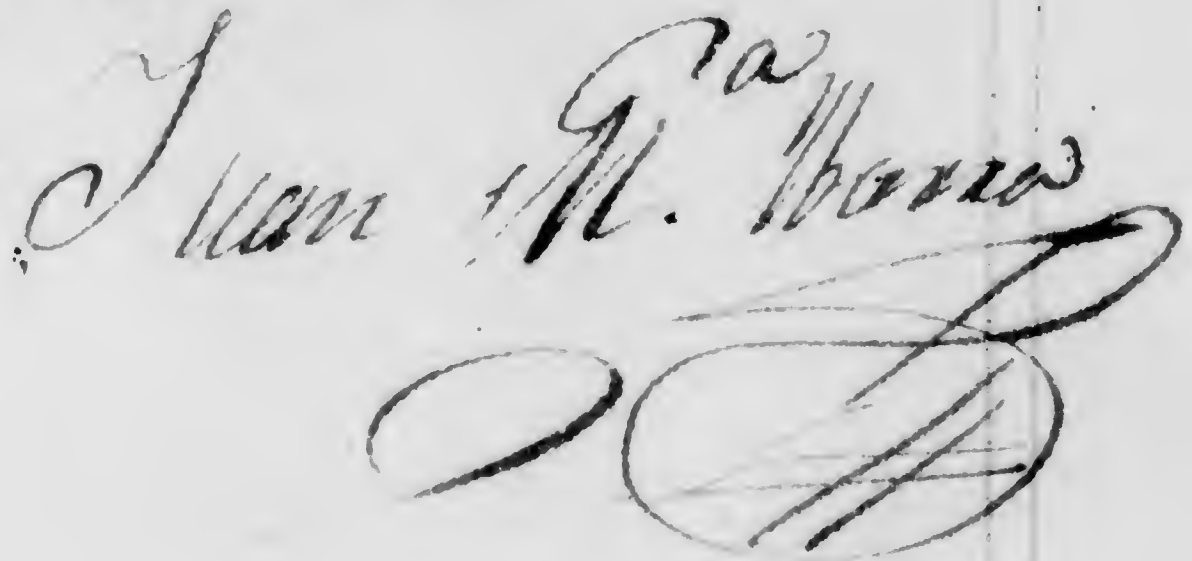 Juan M.ª Ibarra